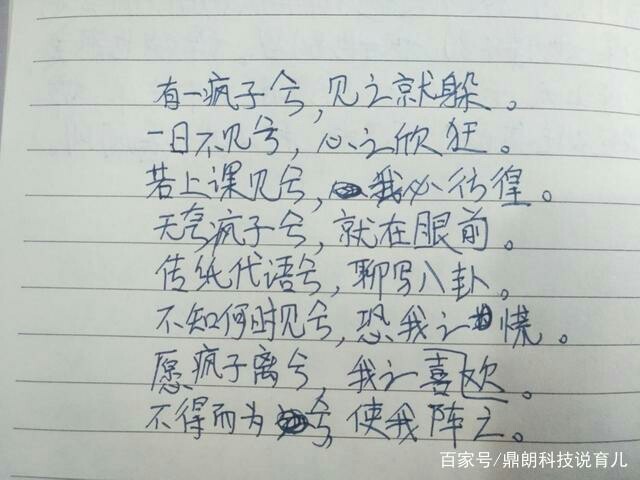 有一疯子兮，见之就躲。
一日不见兮，心之欣狂。
若上课见兮，我必彷徨。
无奈疯子兮，就在眼前。
传纸代语兮，聊写八卦。
不知何时见兮，恐我之慌。
愿疯子离兮，我之喜欢。
不得而为兮，使我阵亡。
百家号/鼎朗科技说育儿